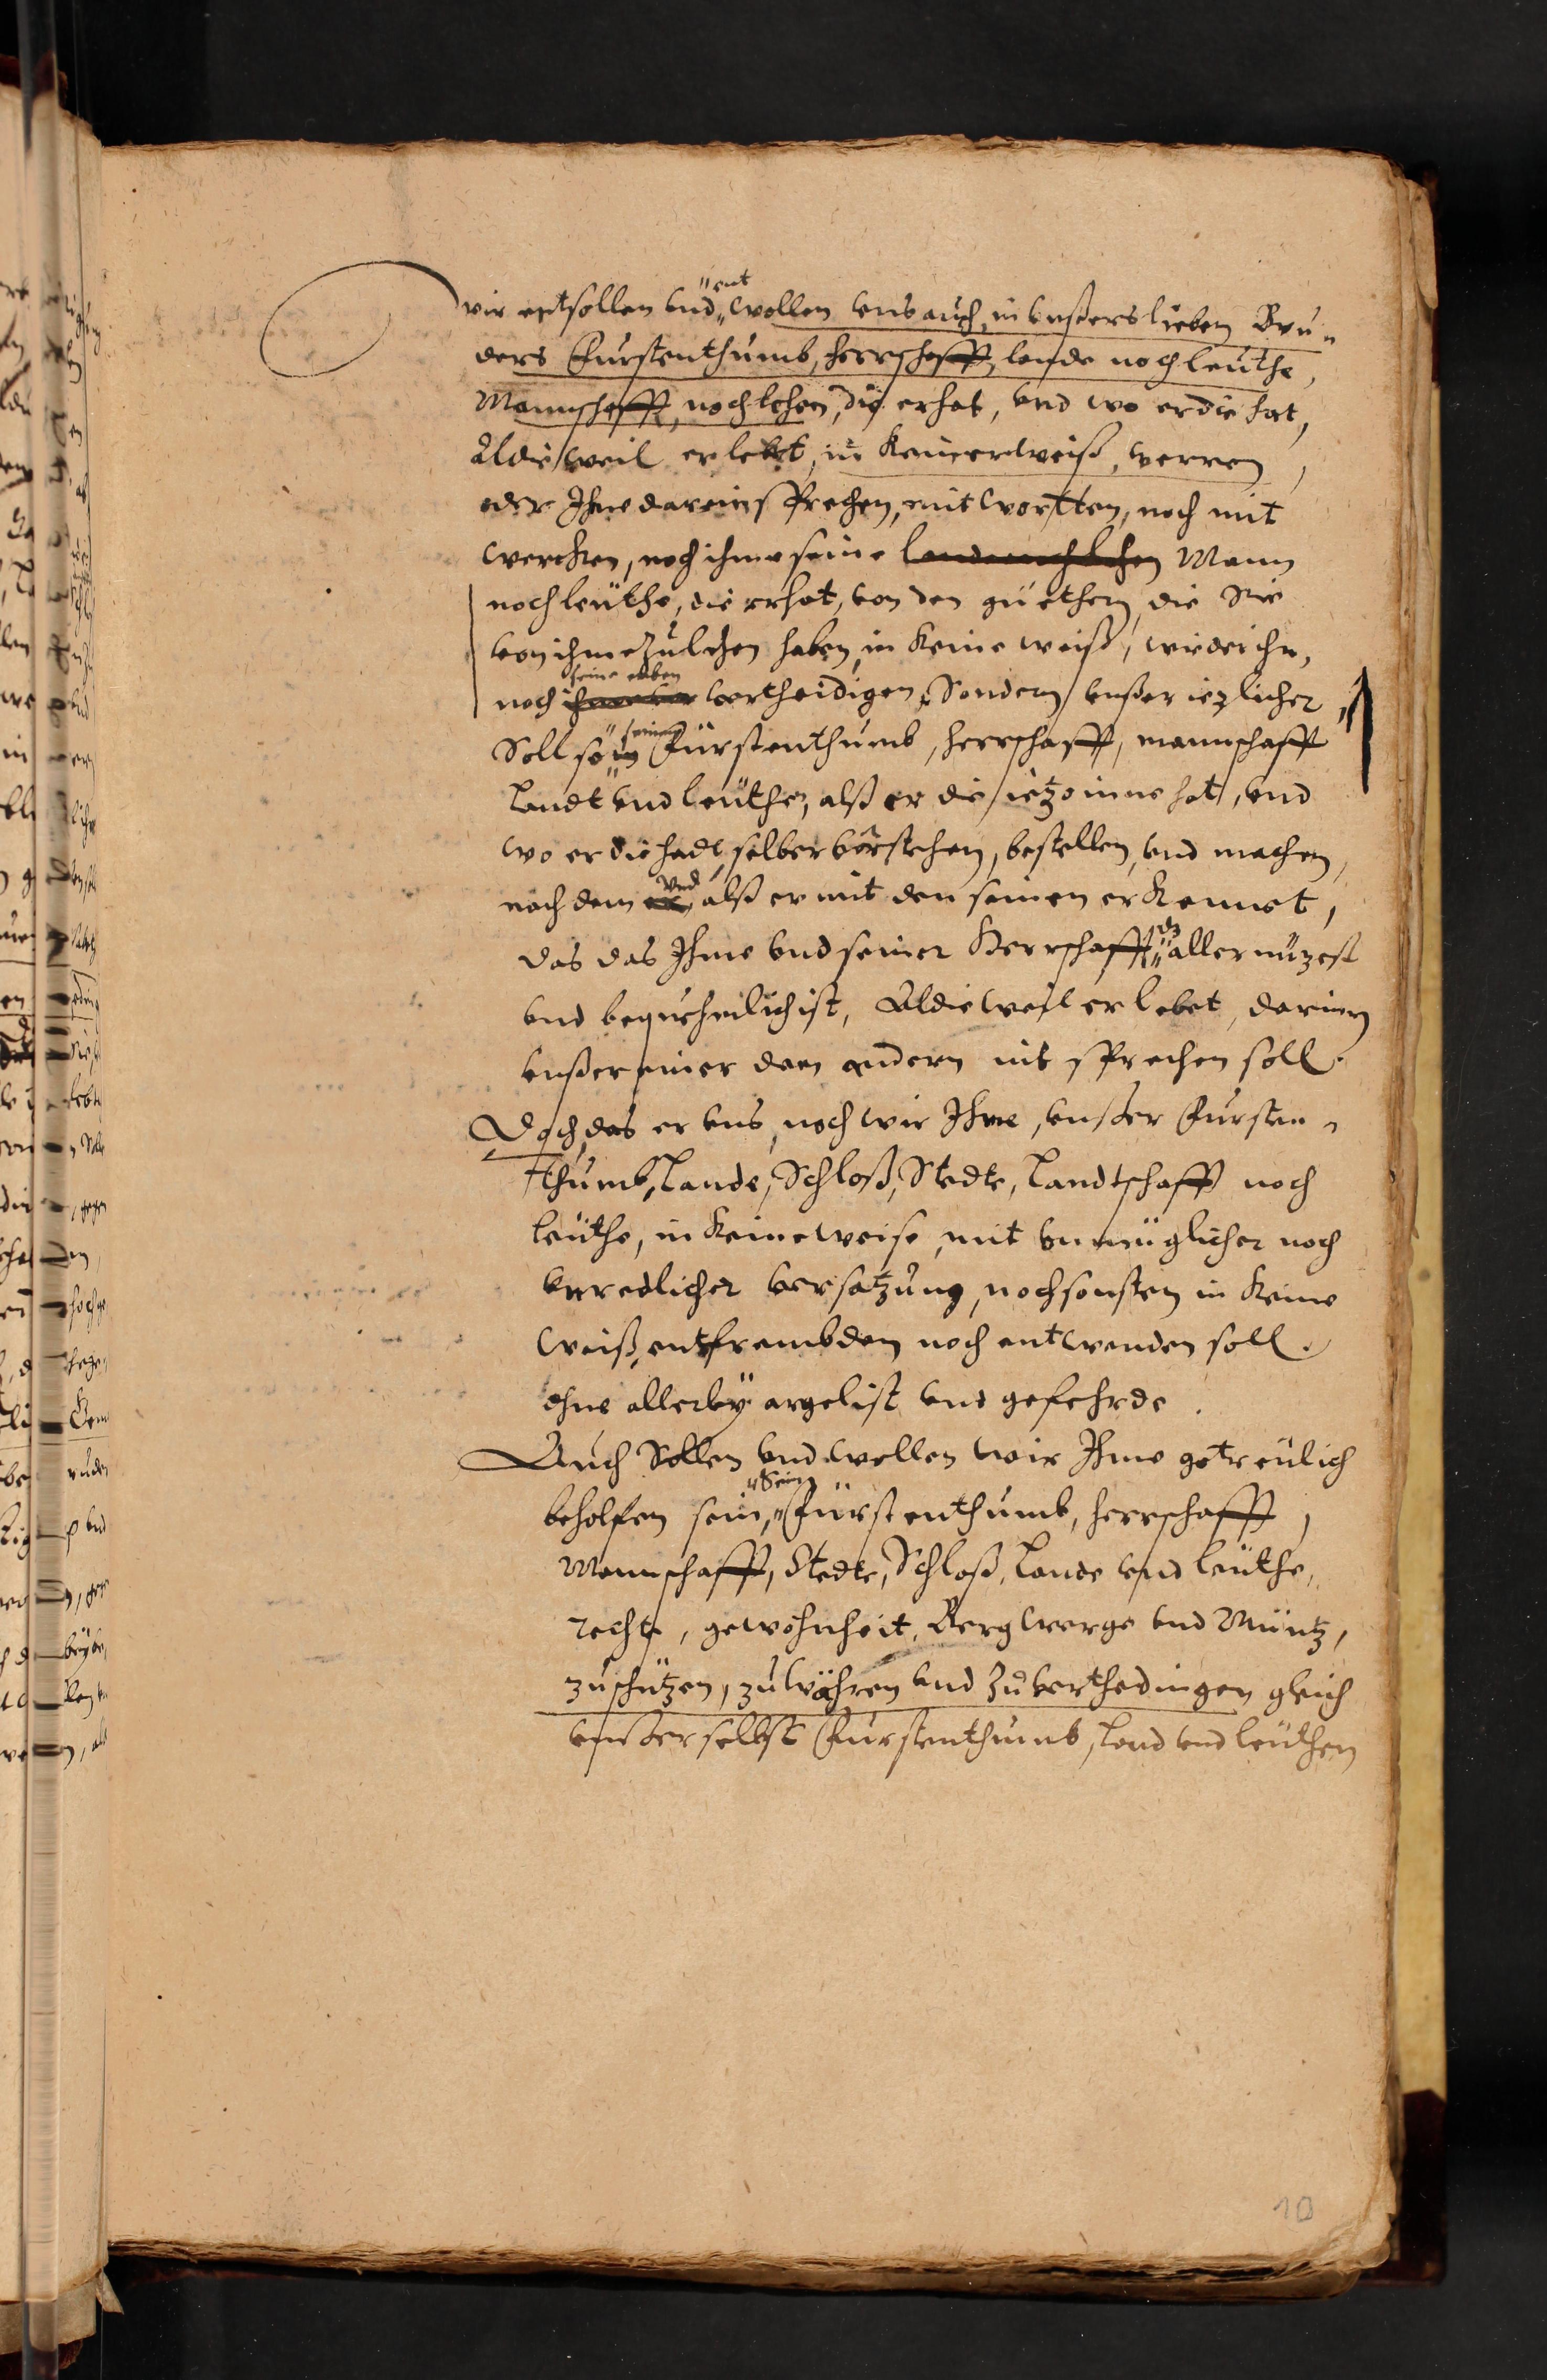 wir entsollen vnd ent wollen vns auch, in vnßers lieben Bru-
ders Fürstenthumb, herrschafft, lande noch leuthe,
Mannschafft, noch lehen, die er hat, vnd wo er die hat,
Aldieweil er lebet, in Keinerweiß, werren,
oder Ihme darein sprechen, mit wortten, noch mit
wercken, noch ihme seine lande noch lehen Mann
noch leuthe, die er hat, von den guethern, die Sie
von ihme zulehen haben, in Keine weiß, wieder ihn,
noch seine erben vertheidigen, Sondern vnßer iezlicher
Soll sein seine Fürstenthumb, herrschafft, mannschafft
Landt vnd leuthe, alß er die ietzo inne hat, vnd
wo er die hadt, selber vorstehen, bestellen, vnd machen,
nach dem vnd alß er mit den seinen erkennet,
das das Ihme vnd seiner Herrschafft dz allernüzest
vnd bequehmlich ist, Aldieweil er lebet, darinn
vnßer einer dem andern nit sprechen soll.
Doch das er vns, noch wir Ihme, vnßer Fürsten-
thumb, Lande, Schloß, Stedte, Landtschafft noch
leuthe, in Keine weise, mit vnmüglicher noch
vnredlicher versatzung, noch sonsten in Keine
weiß, entfrembden noch entwenden soll.
ohne allerley argelist vnd gefehrde.
Auch Sollen vnd wollen wir Ihme getreulich
beholfen sein, Sein Fürstenthumb, herrschafft,
Mannschafft, Stedte, Schloß, Lande vnd leuthe,
recht, gewohnheit, Bergwerge vnd Müntz,
zuschützen, zu währen vnd zuverthedingen gleich
vnßer selbst Fürstenthumb, Land vnd leuthen
10